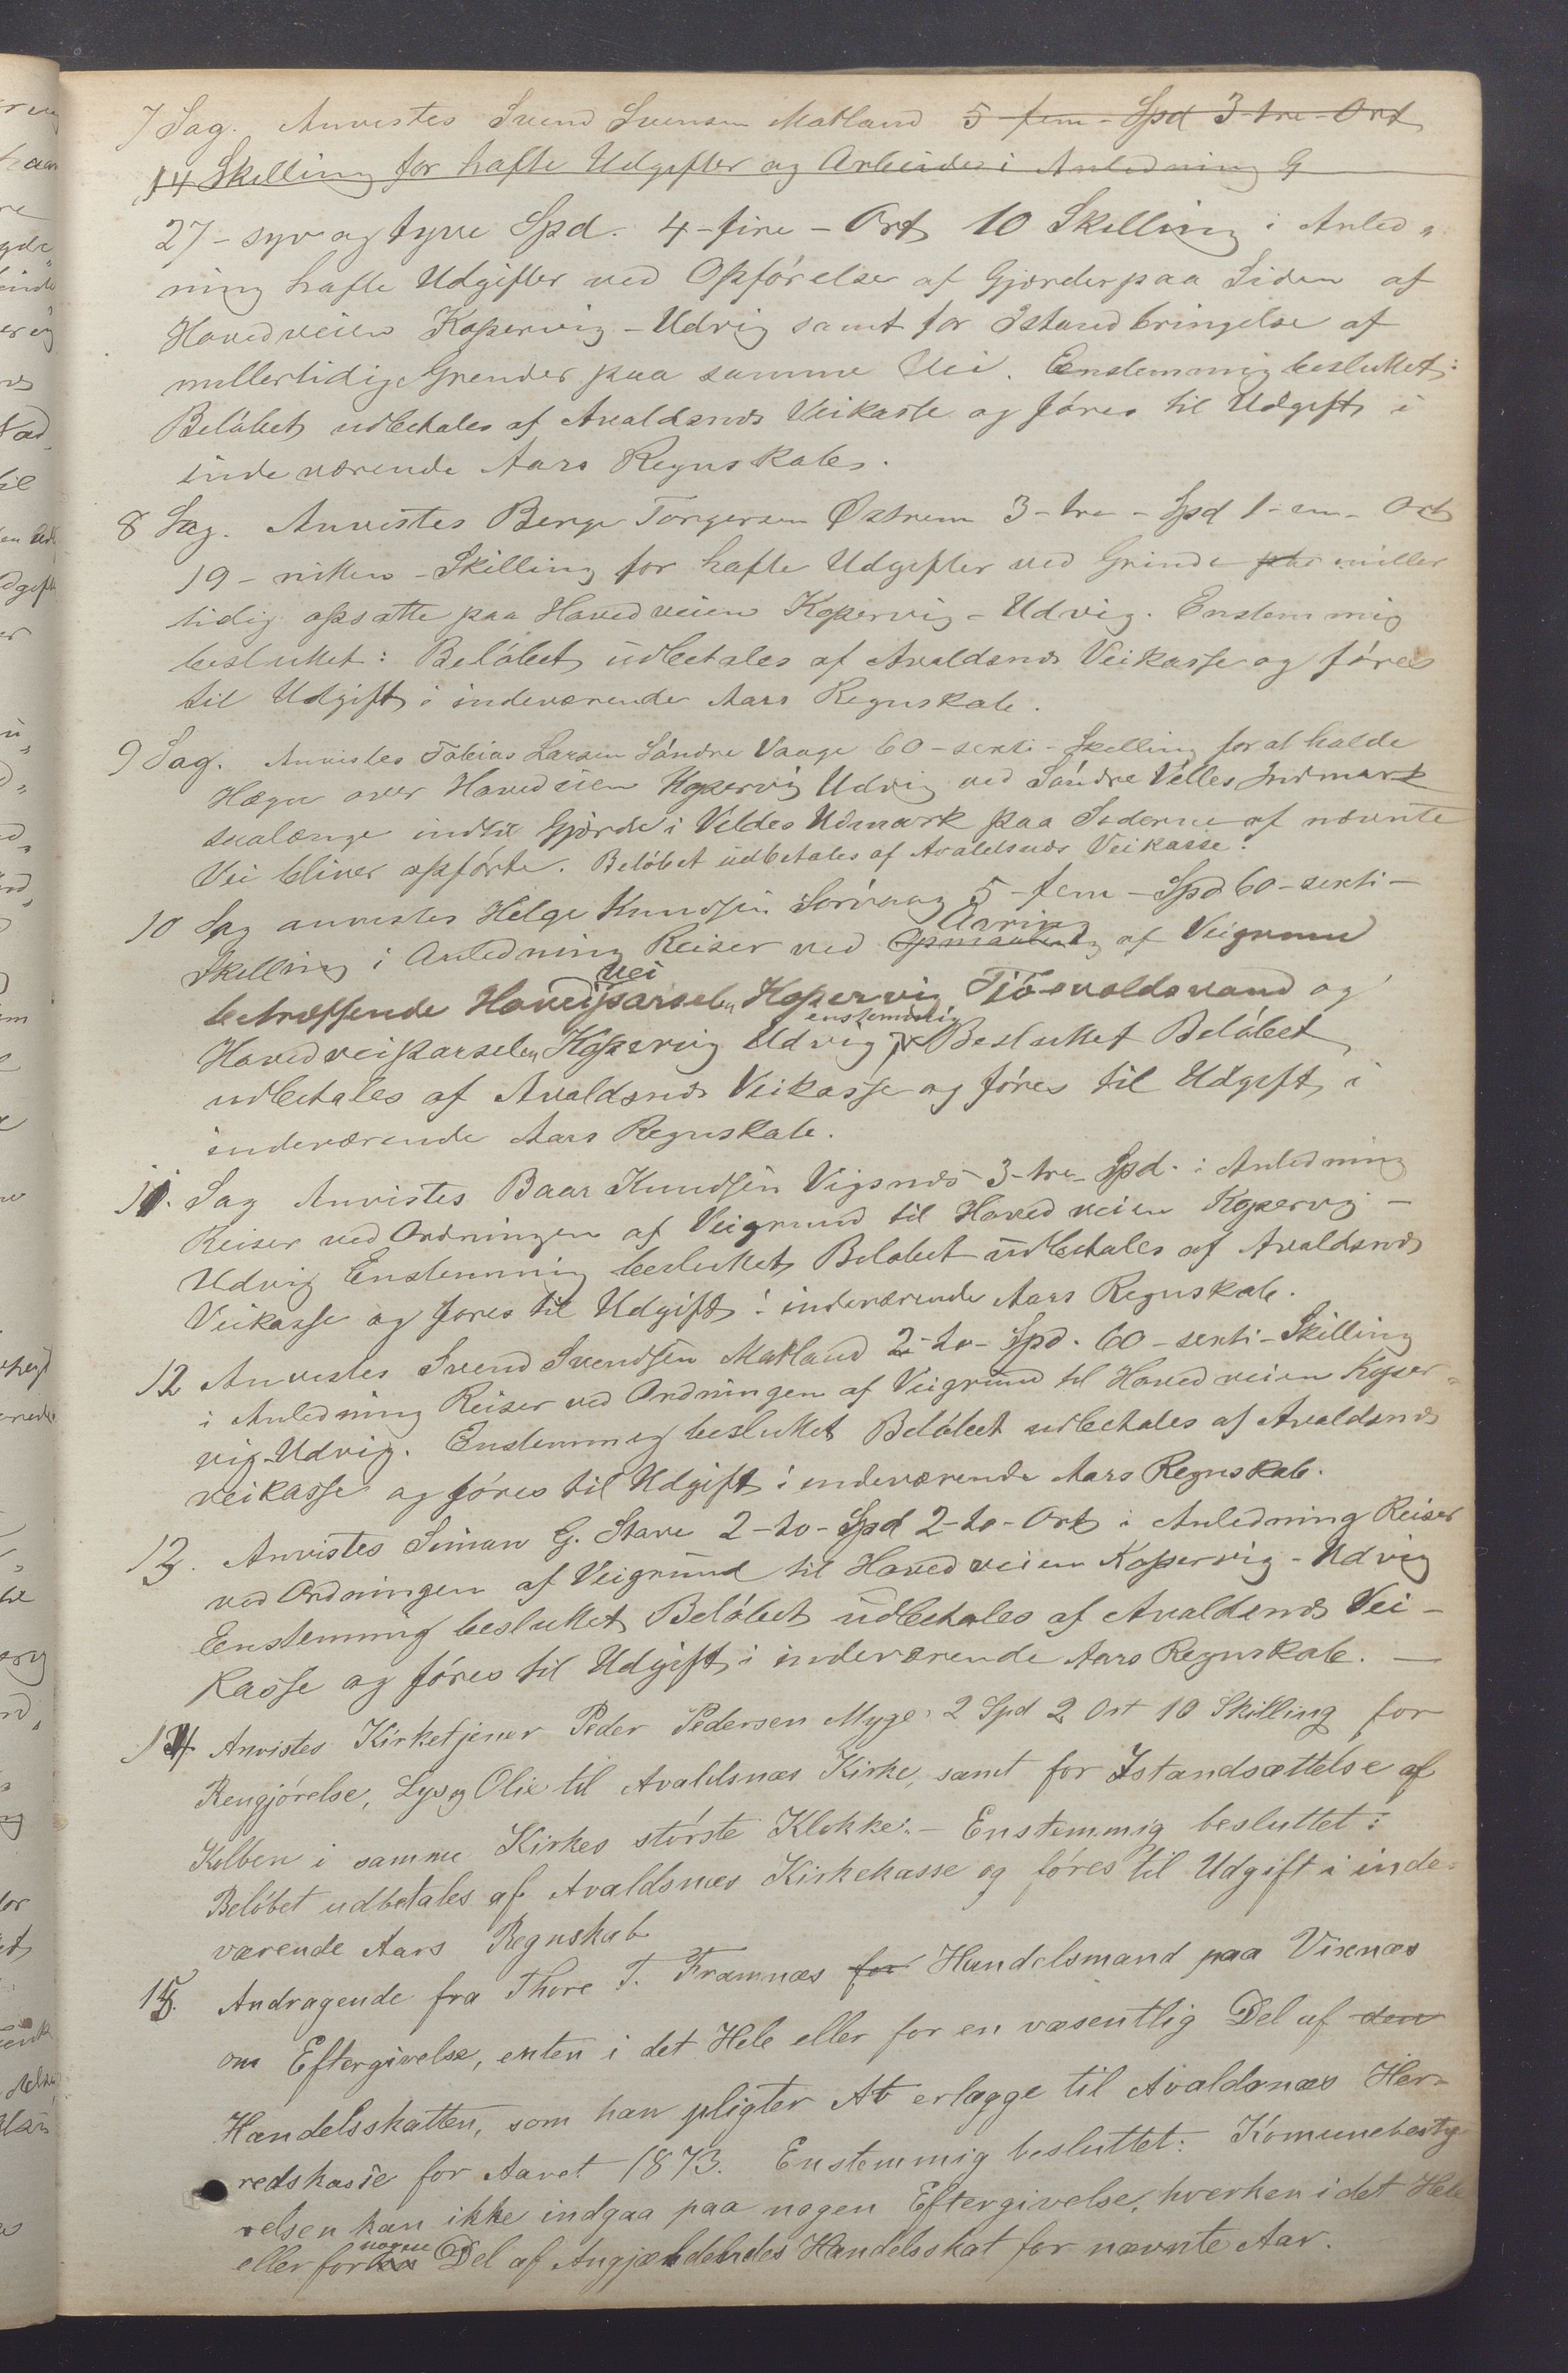 7 Sag. Anvistes Svend Svensen Matland 5-fem-Spd 3-tre-Ort
14 Skilling for hafte Udgifter og Arbeider i Anledning G
27-syv og tyve Spd. 4-fire-Ort 10 Skilling i Anled-
ning hafte Udgifter ved Opførelse af Gjærder paa Siden af
Hovedveien Kopervig-Udvig samt for Istandbringelse af
midlertidige Grender paa samme Vei. Enstemmig besluttet:
Beløbet udbetales af Avaldsnæs Veikasse og føres til Udgift i
indeværende Aars Regnskab.
8 Sag. Anvistes Berge Torgersen Østrem 3-tre-Spd 1-en-Ort
19-nitten-Skilling for hafte Udgifter ved Grinde paa midler
tidig opsatte paa Hovedveien Kopervig-Udvig. Enstemmig
besluttet: Beløbet udbetales af Avaldsnæs Veikasse og føres
til Udgift i indeværende Aars Regnskab.
9 Sag. Anvistes Tobias Larsen Søndre Vaage 60-sexti-Skelling for at holde
Hægn over Hovedveien Kopervig Udvig ved Søndre Velles Indmark
saalænge indtil Gjærde i Veldes Udmark paa Siderne af nævnte
Vei bliver opførte. Beløbet udbetales af Avaldsnæs Veikasse.
10 Sag anvistes Helge Knudsen Sørvaag 5-fem-Spd 60-sexti-
Skelling i Anledning Reiser ved Opmaaling Ordning af Veigrund
betræffende Hovedveiparselen Kopervig Tjösvoldsvand og
Hovedveiparselen Kopervig Udvig enstemmig Besluttet Beløbet
udbetales af Avaldsnæs Veikasse og føres til Udgift i
indeværende Aars Regnskab.
11. Sag Anvistes Baar Knudsen Vigsnæs 3-tre-Spd. i Anledning
Reiser ved Ordningen af Veigrund til Hovedveien Kopervig-
Udvig Enstemmig besluttet Beløbet udbetales af Avaldsnæs
Veikasse og føres til Udgift i indeværende Aars Regnskab.
12 Anvistes Svend Svendsen Matland 2-to-Spd. 60-sexti-Skilling
i Anledning Reiser ved Ordningen af Veigrund til Hovedveien Koper-
vig-Udvig. Enstemmig besluttet Beløbet udbetales af Avaldsnæs
veikasse og føres til Udgift i indeværende Aars Regnskab.
13. Anvistes Simon G. Stave 2-to-Spd 2-to-Ort i Anledning Reiser
ved Ordningen af Veigrund til Hovedveien Kopervig-Udvig
Enstemmig besluttet Beløbet udbetales af Avaldsnæs Vei-
kasse og føres til Udgift i indeværende Aars Regnskab. -
14 Anvistes Kirketjener Peder Pedersen Myge: 2 Spd 2 Ort 10 Skilling for
Rengjørelse, Lys og Olie til Avaldsnæs Kirke, samt for Istandsættelse af
Kolben i samme Kirkes største Klokke:- Enstemmig besluttet:
Beløbet udbetales af Avaldsnæs Kirkekasse og føres til Udgift i inde-
værende Aars Regnskab
15. Andragende fra Thore T. Framnæs for Handelsmand paa Vixnæs
om Eftergivelse, enten i det Hele eller for en væsentlig Del af den
Handelsskatten, som han pligter At erlægge til Avaldsnæs Her-
redskasse for Aaret 1873. Enstemmig besluttet: Komunebesty-
relsen kan ikke indgaa paa nogen Eftergivelse, hverken i det Hele
eller for nogen Del af Angjældendes Handelsskat for nævnte Aar.